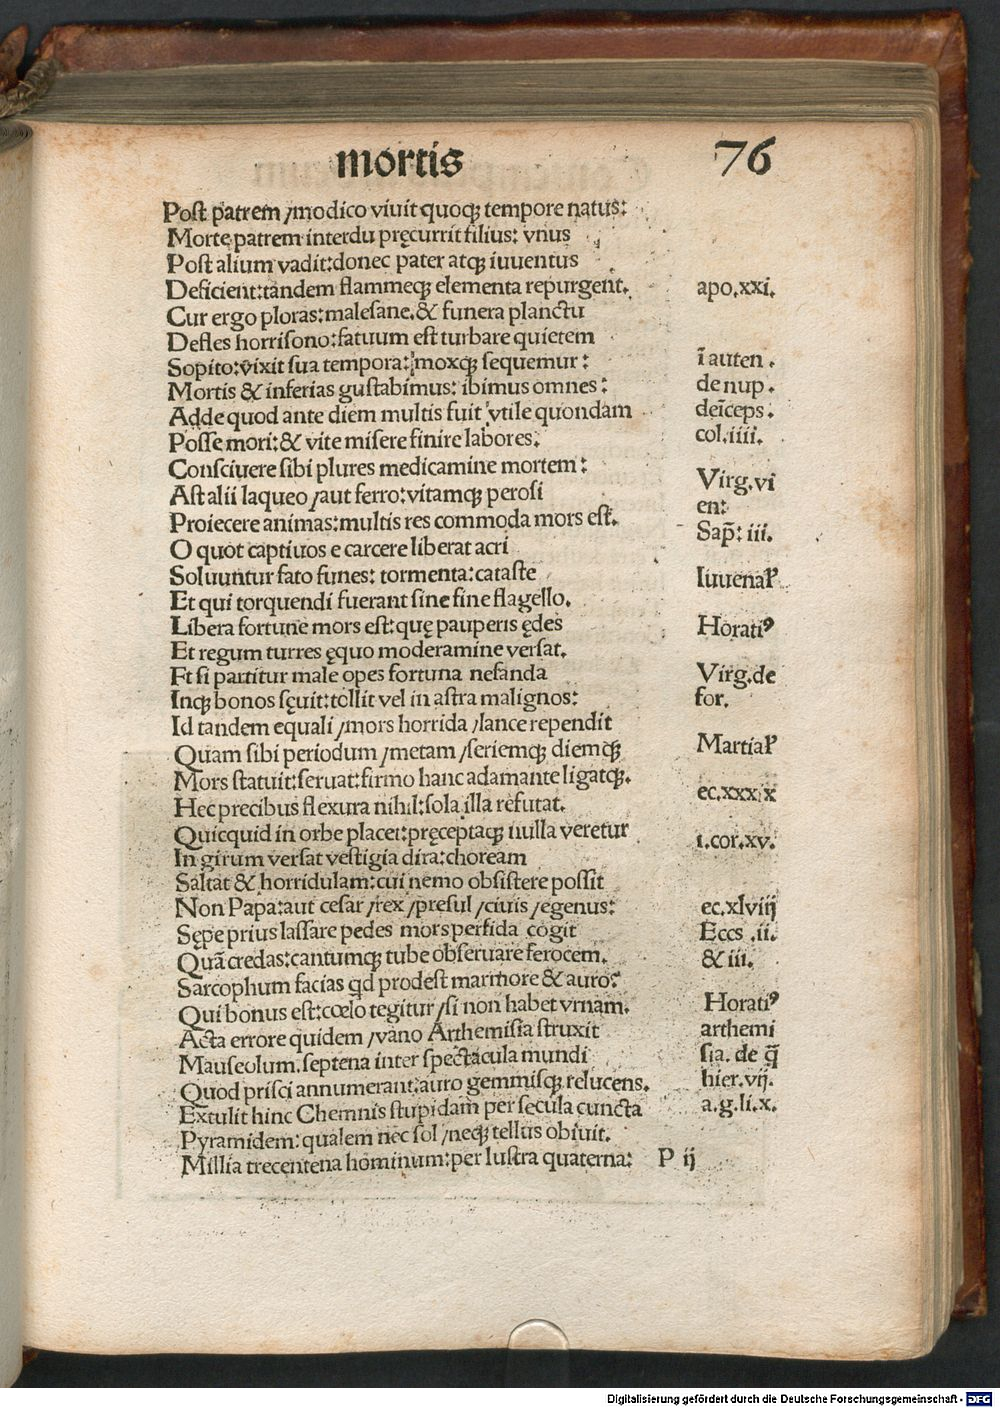 mortis 76
Post patrem /modico viuit quoqꝫ tempore natus:
Morte patrem interdu pręcurrit filius: vnus
Post alium vadit:donec pater atqꝫ iuuentus
Deficient:tandem flammeqꝫ elementa repurgent. apo.xxi.
Cur ergo ploras:malesane.& funera planctu
Defles horrisono:fatuum est turbare quietem
Sopito:vixit sua tempora: moxqꝫ sequemur: ī auten.
Mortis & inferias gustabimus: ibimus omnes: de nup.
Adde quod ante diem multis fuit vtile quondam deīceps.
Posse mori:& vite misere finire labores. col.iiii.
Consciuere sibi plures medicamine mortem:
Ast alii laqueo /aut ferro:vitamqꝫ perosi Virg.vi
en:
Proiecere animas:multis res commoda mors est. Sap̄: iii.
O quot captiuos e carcere liberat acri
Soluuntur fato funes: tormenta:cataste Iuuenaꝉ
Et qui torquendi fuerant sine fine flagello.
Libera fortune mors est:quę pauperis ędes Horatiꝰ
Et regum turres ęquo moderamine versat.
Et si partitur male opes fortuna nefanda Virg.de
Inqꝫ bonos sęuit:tollit vel in astra malignos: for.
Id tandem equali /mors horrida /lance rependit
Quam sibi periodum /metam /seriemqꝫ diemqꝫ Martiaꝉ
Mors statuit:seruat:firmo hanc adamante ligatqꝫ.
Hec precibus flexura nihil:sola illa refutat. ec.xxxix
Quicquid in orbe placet:pręceptaqꝫ nulla veretur i.cor.xv.
In girum versat vestigia dira:choream
Saltat & horridulam:cui nemo obsistere possit
Non Papa:aut cesar /rex /presul /ciuis /egenus: ec.xlviij
Sępe prius lassare pedes mors perfida cogit Eccs .ii.
Quā credas:cantumqꝫ tube obseruare ferocem. & iii.
Sarcophum facias qd prodest marmore & auro:
Qui bonus est:cœlo tegitur /si non habet vrnam. Horatiꝰ
Acta errore quidem /vano Arthemisia struxit arthemi
Mauseolum.septena inter spectacula mundi sia. de q̄
Quod prisci annumerant:auro gemmisqꝫ relucens. hier.vij.
Extulit hinc Chemnis stupidam per secula cuncta a.g.li.x.
Pyramidem:qualem nec sol /neqꝫ tellus obiuit.
Millia trecentena hominum:per lustra quaterna: P ij
Digitalisierung gefördert durch die Deutsche Forschungsgemeinschaft - DFG